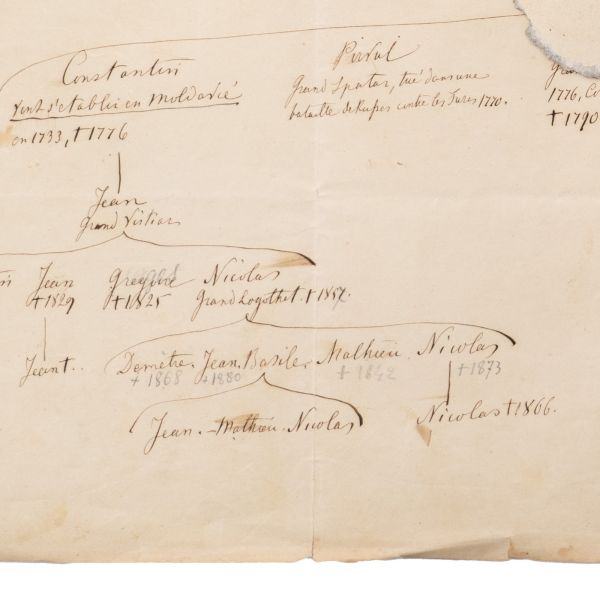 Constantin
Vint s'etablir en Moldavie
en 1733, †1776
Pirvul
Grand Spatar, tué dans une
bataille de Rufes contre les Turcs 1770.
1776, Co
†1790
Jean
Grand Vistiar
Jean
†1829
†1825
Nicolas
Grand Logothet. †1857.
Jean †..
Demètre. Jean. Basile. Mathieu. Nicolas
†1868 †1880 †1842 †1873
Jean. – Mathieu. Nicolas
Nicolas †1866.